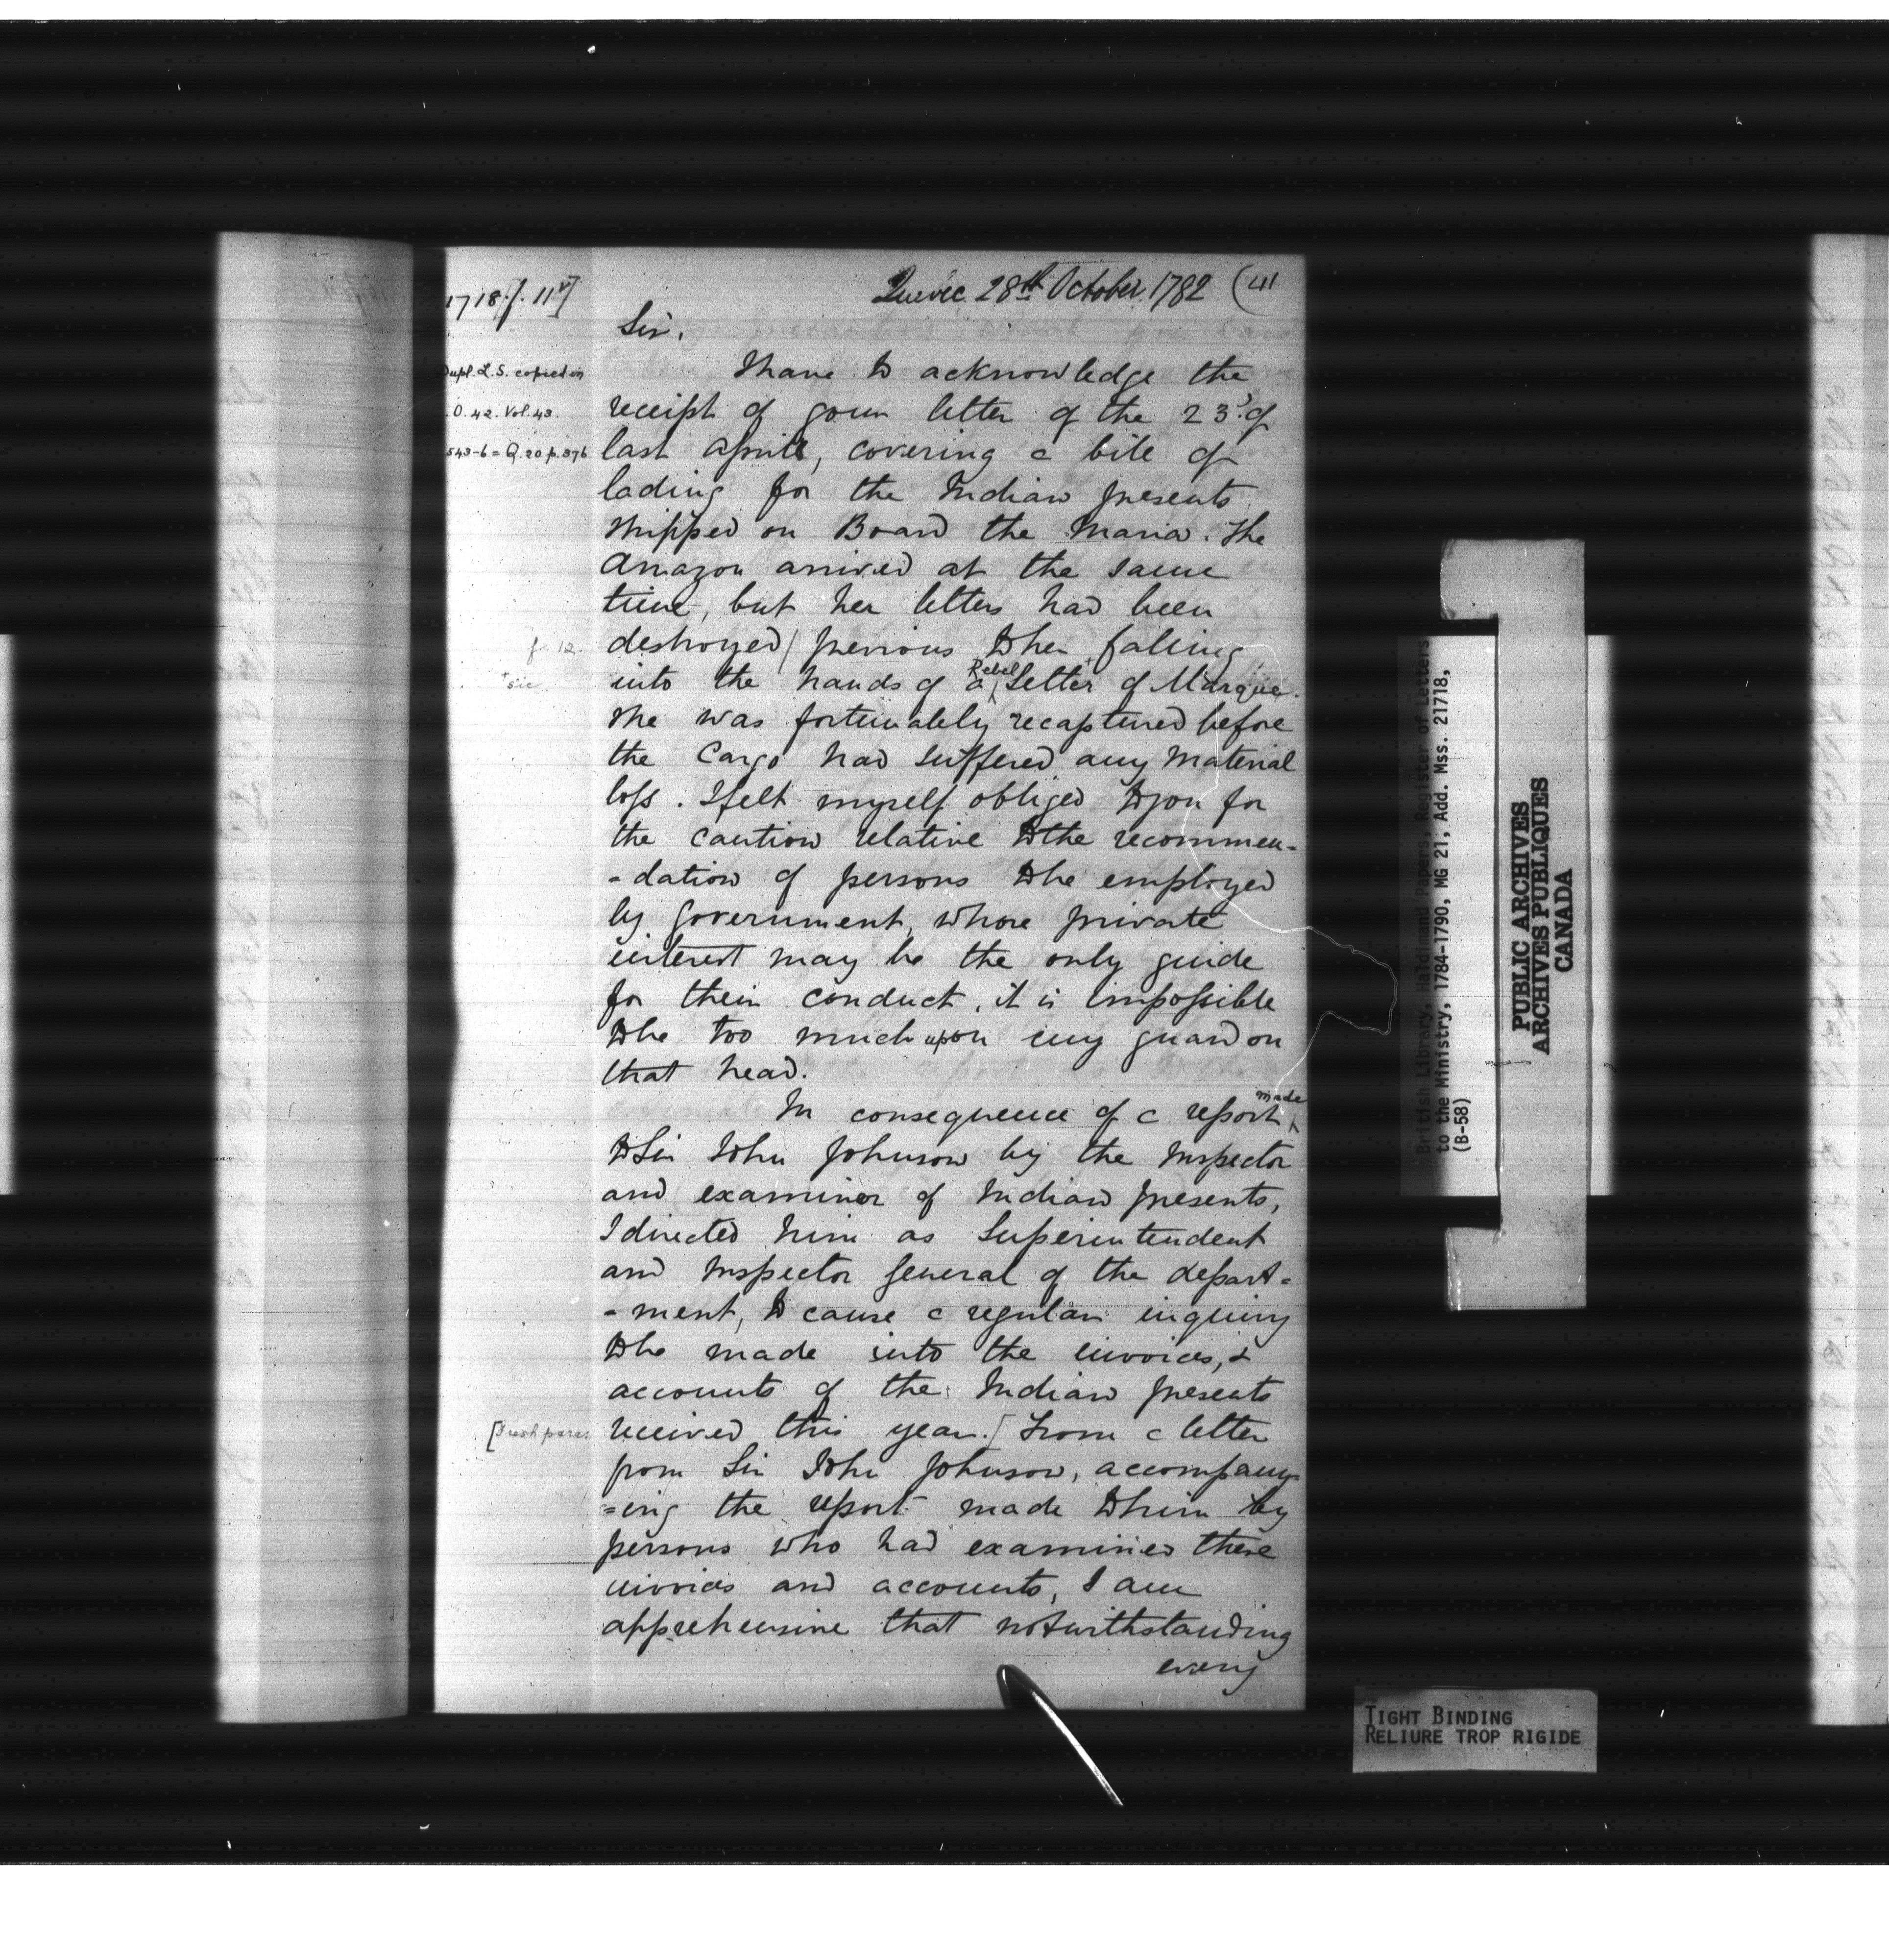 1718 [f. 11v]
Quebec 28th October 1782 (41
Sir,
Dupl. L. S. copied on
O. 42. Vol. 43.
543-6 = Q. 20 p. 376
I have to acknowledge the
receipt of your letter of the 23d. of
last April, covering a bill of
lading for the Indian presents
shipped on Board the Maria. The
Amazon arrived at the same
time, but her letters had been
f. 12.
destroyed / previous to her falling
+ sic
into the hands of a Rebel Letter + of Marque.
She was fortunately recaptured before
the Cargo had suffered any material
loss. I felt myself obliged to you for
the caution relative to the recommen-
-dation of persons to be employed
by Government, whose private
interest may be the only guide
for their conduct, it is impossible
to be too much upon my guard on
that head.
In consequence of a report made
to Sir John Johnson by the Inspector
and examiner of Indian presents,
I directed him as Superintendent
and Inspector General of the depart=
-ment, to cause a regular inquiry
to be made into the invoices, &
accounts of the Indian presents
[Fresh para.
received this year. [From a letter
from Sir John Johnson, accompany=
=ing the report made to him by
persons who had examined these
invoices and accounts, I am
apprehensive that notwithstanding
every
British Library, Haldimand Papers, Register of Letters
to the Ministry, 1784-1790, MG 21, Add. Mss. 21718,
(B-58)
PUBLIC ARCHIVES
ARCHIVES PUBLIQUES
CANADA
TIGHT BINDING
RELIURE TROP RIGIDE